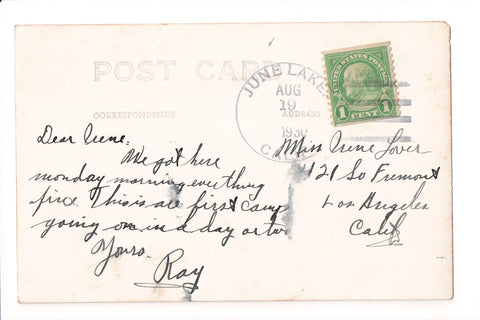 POST CARD
JUNE LAKE
AUG
19
1930
CALIF
UNITED STATES POSTAGE
1 CENT 1
CORRESPONDENCE
ADDRESS
Dear Irene:
We got here
monday morning everthing
fine This is are first camp
going on in a day or two
Yours.
Ray
Miss Irene Lover
121 So Fremont
Los Angeles
Calif